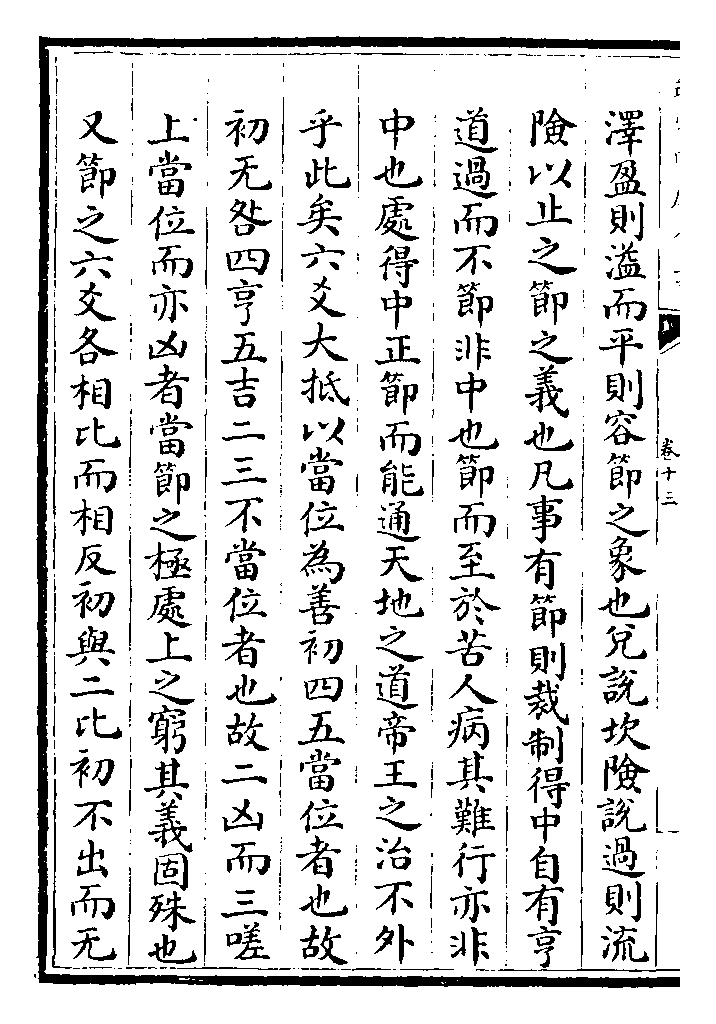 澤盈則溢而平則容節之象也兌說坎險說過則流
險以止之節之義也凡事有節則裁制得中自有亨
道過而不節非中也節而至於苦人病其難行亦非
中也處得中正節而能通天地之道帝王之治不外
乎此矣六爻大抵以當位為善初四五當位者也故
初无咎四亨五吉二三不當位者也故二凶而三嗟
上當位而亦凶者當節之極處上之窮其義固殊也
又節之六爻各相比而相反初與二比初不出而无
卷十三